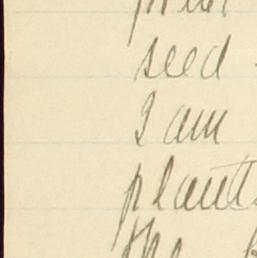 seed
I am
plant
the